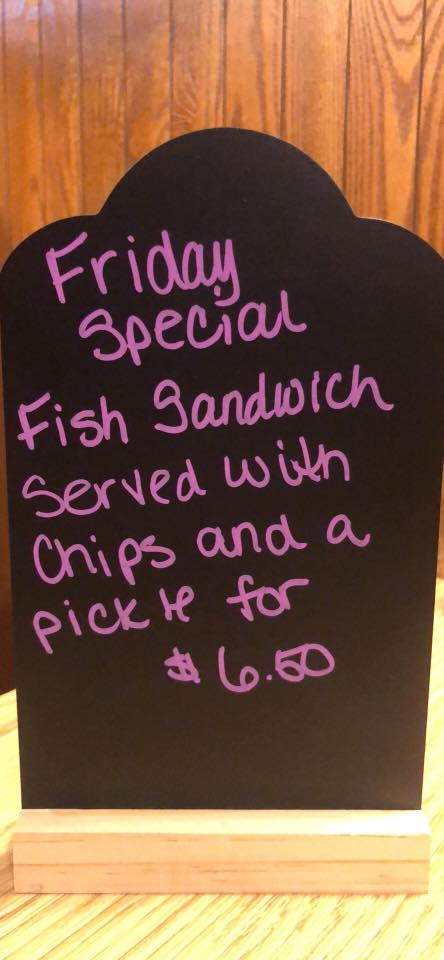 Friday
Special
Fish Sandwich
Served with
Chips and a
pickle for
$6.50